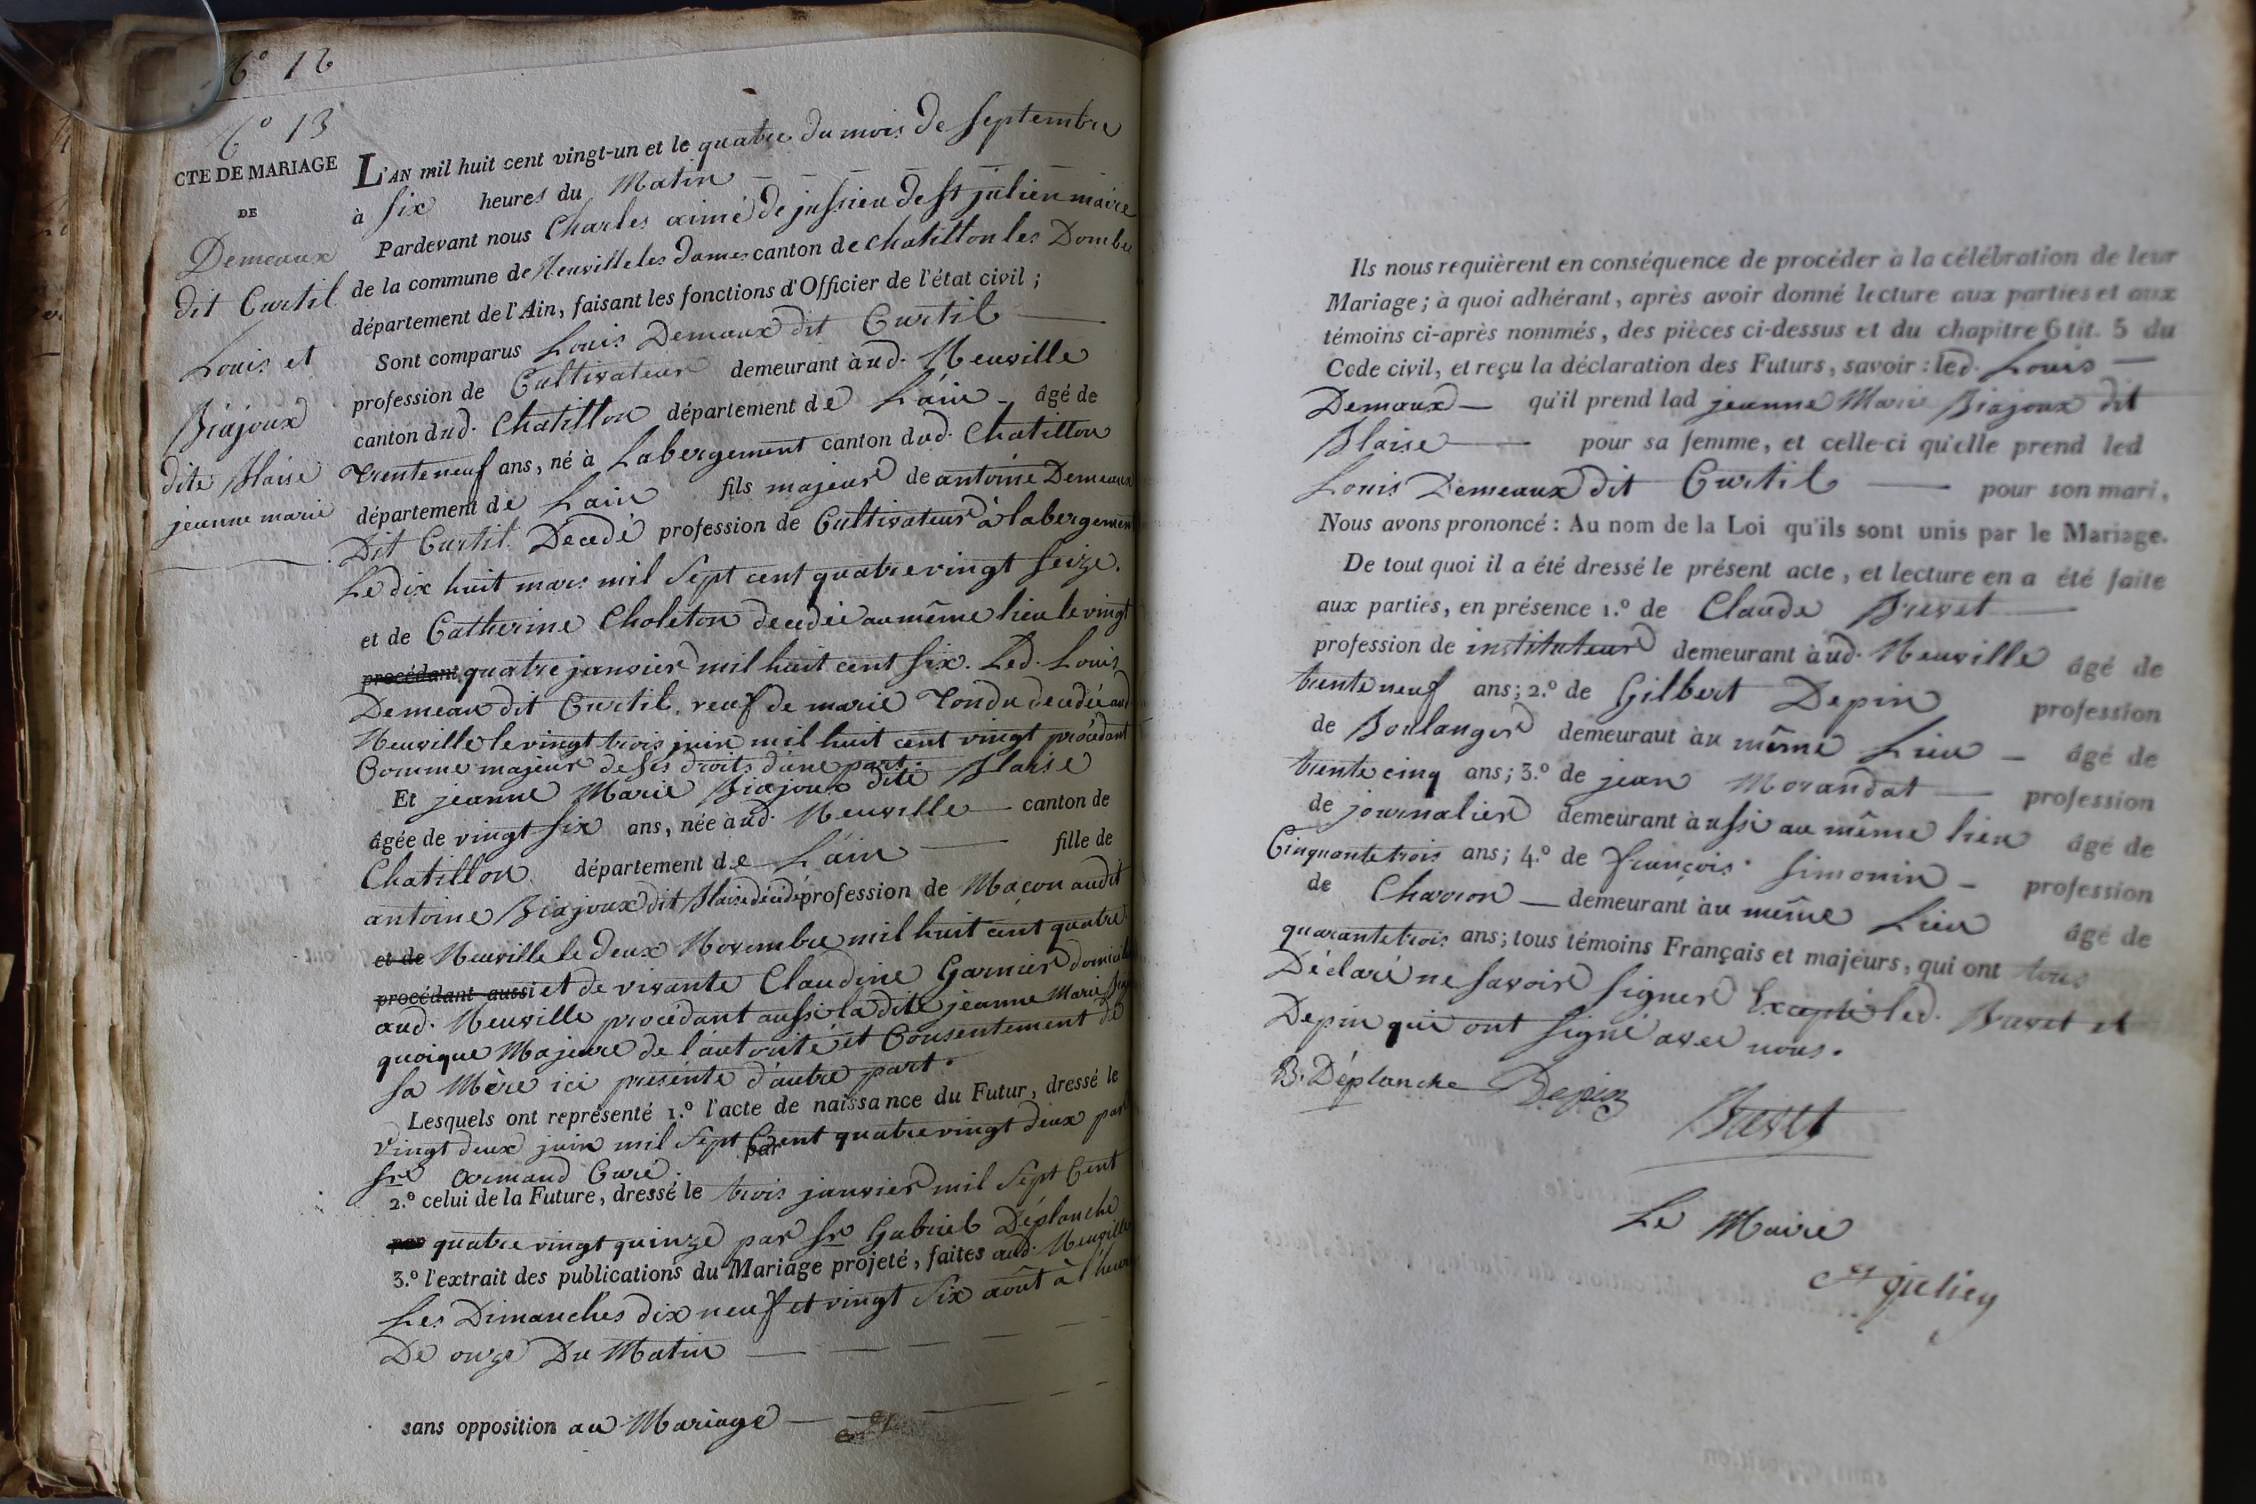 N° 12
N° 13
CTE DE MARIAGE
DE
Demeaux
dit Curtil
Louis et
Biajoux
dite Blaise
jeanne marie
L'AN mil huit cent vingt-un et le quatre du mois de septembre
à six heures du Matin
Pardevant nous Charles aimé de jussieu de St julien maire
de la commune de Neuville les Dames canton de chatillon les Dombes
département de l'Ain, faisant les fonctions d'Officier de l'état civil ;
Sont comparus Louis Demaux dit Curtil
profession de Cultivateur demeurant à ud. Neuville
canton dud. Chatillon département de L'ain âgé de
trente neuf ans, né à Labergement canton dud. Chatillon
département de Lain fils majeur de antoine Demeaux
Dit Curtil Decedé profession de Cultivateur à labergement
Le dix huit mars mil sept cent quatre vingt seize.
et de Catherine Choleton decedée au même lieu le vingt
procédant quatre janvier mil huit cent six. Led. Louis
Demeau dit Curtil, veuf de marie Tondu decedée aud
Neuville le vingt trois juin mil huit cent vingt procédant
Comme majeur de ses droits d'une part.
Et jeanne Marie Biajoux dite Blaise
âgée de vingt six ans, née à ud. Neuville canton de
Chatillon département de L'ain fille de
antoine Biajoux dit Blaise décédé profession de Maçon audit
et de Neuville le deux Novembre mil huit cent quatre
procédant aussi et de vivante Claudine Garnier
aud. Neuville procédant aussi la dite jeanne Marie
quoique Majeure de l'autorité et Consentement de
sa Mère ici présente d'autre part.
Lesquels ont représenté 1.° l'acte de naissance du Futur, dressé le
vingt deux juin mil sept Cent quatre vingt deux par
par
Sr. Curé.
2.° celui de la Future, dressé le trois janvier mil sept Cent
par quatre vingt quinze par Sr. Gabriel Déplanche
3.° l'extrait des publications du Mariage projeté, faites aud. Neuville
Les Dimanches dix neuf et vingt six août à l'heure
De onze Du Matin
sans opposition au Mariage
Ils nous requièrent en conséquence de procéder à la célébration de leur
Mariage ; à quoi adhérant, après avoir donné lecture aux parties et aux
témoins ci-après nommés, des pièces ci-dessus et du chapitre 6 tit. 5 du
Code civil, et reçu la déclaration des Futurs, savoir : led. Louis
Demaux qu'il prend lad jeanne Marie Biajoux dit
Blaise pour sa femme, et celle-ci qu'elle prend led
Louis Demeaux dit Curtil pour son mari,
Nous avons prononcé : Au nom de la Loi qu'ils sont unis par le Mariage.
De tout quoi il a été dressé le présent acte, et lecture en a été faite
aux parties, en présence 1.° de Claude Brevet
profession de instituteur demeurant à ud. Neuville âgé de
trente neuf ans ; 2.° de Gilbert Depin profession
de Boulanger demeuraut à u même Lieu âgé de
trente cinq ans ; 3.° de jean Morandat profession
de journalier demeurant à ussi au même lieu âgé de
Cinquante trois ans ; 4.° de françois simonin profession
de Charron demeurant à u même Lieu âgé de
quarante trois ans ; tous témoins Français et majeurs, qui ont tous
Déclaré ne savoir signer Excepté led. Brevet et
Depin qui ont signé avec nous.
B. Déplanche Depin
Brevet
Le Maire
St julien